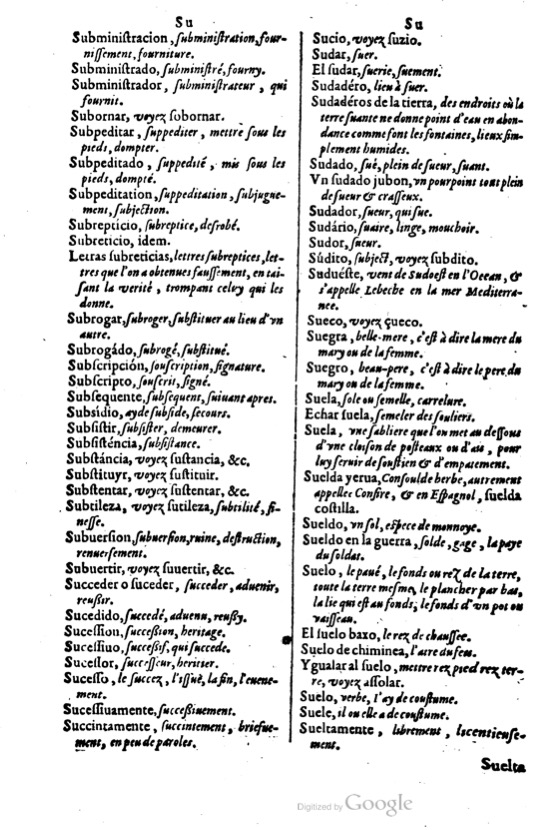 Su
Subministracion, subministration, four-
nissement, fourniture.
Subministrado, subministré, fourny.
Subministrador, subministrateur, qui
fournit.
Subornar, voyez sobornar.
Subpeditar, suppediter, mettre sous les
pieds, dompter.
Subpeditado, suppedité, mis sous les
pieds, dompté.
Subpeditation, suppeditation, subjugue-
ment, subjection.
Subrepticio, subreptice, desrobé.
Subreticio, idem.
Letras subreticias, lettres subreptices, let-
tres que l'on a obtenues faussement, en tai-
sant la verité, trompant celuy qui les
donne.
Subrogar, subroger, substituer au lieu d'vn
autre.
Subrogádo, subrogé, substitué.
Subscripción, souscription, signature.
Subscripto, souscrit, signé.
Subsequente, subsequent, suiuant apres.
Subsidio, ayde subside, secours.
Subsistir, subsister, demeurer.
Subsisténcia, subsistance.
Substáncia, voyez sustancia, &c.
Substituyr, voyez sustituir.
Substentar, voyez sustentar, &c.
Subtileza, voyez sutileza, subtilité, fi-
nesse.
Subuersion, subuersion, ruine, destruction,
renuersement.
Subuertir, voyez suuertir, &c.
Succeder o suceder, succeder, aduenir,
reussir.
Sucedido, succedé, aduenu, reussy.
Sucession, succession, heritage.
Sucessiuo, successif, qui succede.
Sucessor, successeur, heritier.
Sucesso, le succez, l'issuë, la fin, l'euene-
ment.
Sucessiuamente, successiuement.
Succintamente, succintement, briefue-
ment, en peu de paroles.
Su
Sucio, voyez suzio.
Sudar, suer.
El sudar, suerie, suement.
Sudadéro, lieu à suer.
Sudadéros de la tierra, des endroits où la
terre suante ne donne point d'eau en abon-
dance comme font les fontaines, lieux sim-
plement humides.
Sudado, sué, plein de sueur, suant.
Vn sudado jubon, vn pourpoint tout plein
de sueur & crasseux.
Sudador, sueur, qui sue.
Sudário, suaire, linge, mouchoir.
Sudor, sueur.
Súdito, subject, voyez subdito.
Suduéste, vent de Sudoest en l'Ocean, &
s'appelle Lebeche en la mer Mediterra-
nee.
Sueco, voyez çueco.
Suegra, belle-mere, c'est à dire la mere du
mary ou de la femme.
Suegro, beau-pere, c'est à dire le pere du
mary ou de la femme.
Suela, sole ou semelle, carrelure.
Echar suela, semeler des souliers.
Suela, vne sabliere que l'on met au dessous
d'vne cloison de posteaux ou d'ais, pour
luy seruir de soustien & d'empatement.
Suelda yerua, Consoulde herbe, autrement
appellee Confire, & en Espagnol, suelda
costilla.
Sueldo, vn sol, espece de monnoye.
Sueldo en la guerra, solde, gage, la paye
du soldat.
Suelo, le paué, le fonds ou rez de la terre,
toute la terre mesme, le plancher par bas,
la lie qui est au fonds, le fonds d'vn pot ou
vaisseau.
El suelo baxo, le rez de chaussee.
Suelo de chiminea, l'aire du feu.
Ygualar al suelo, mettre rez pied rez ter-
re, voyez assolar.
Suelo, verbe, i'ay de coustume.
Suele, il ou elle a de coustume.
Sueltamente, librement, licentieuse-
ment.
Suelta
Digitized by Google